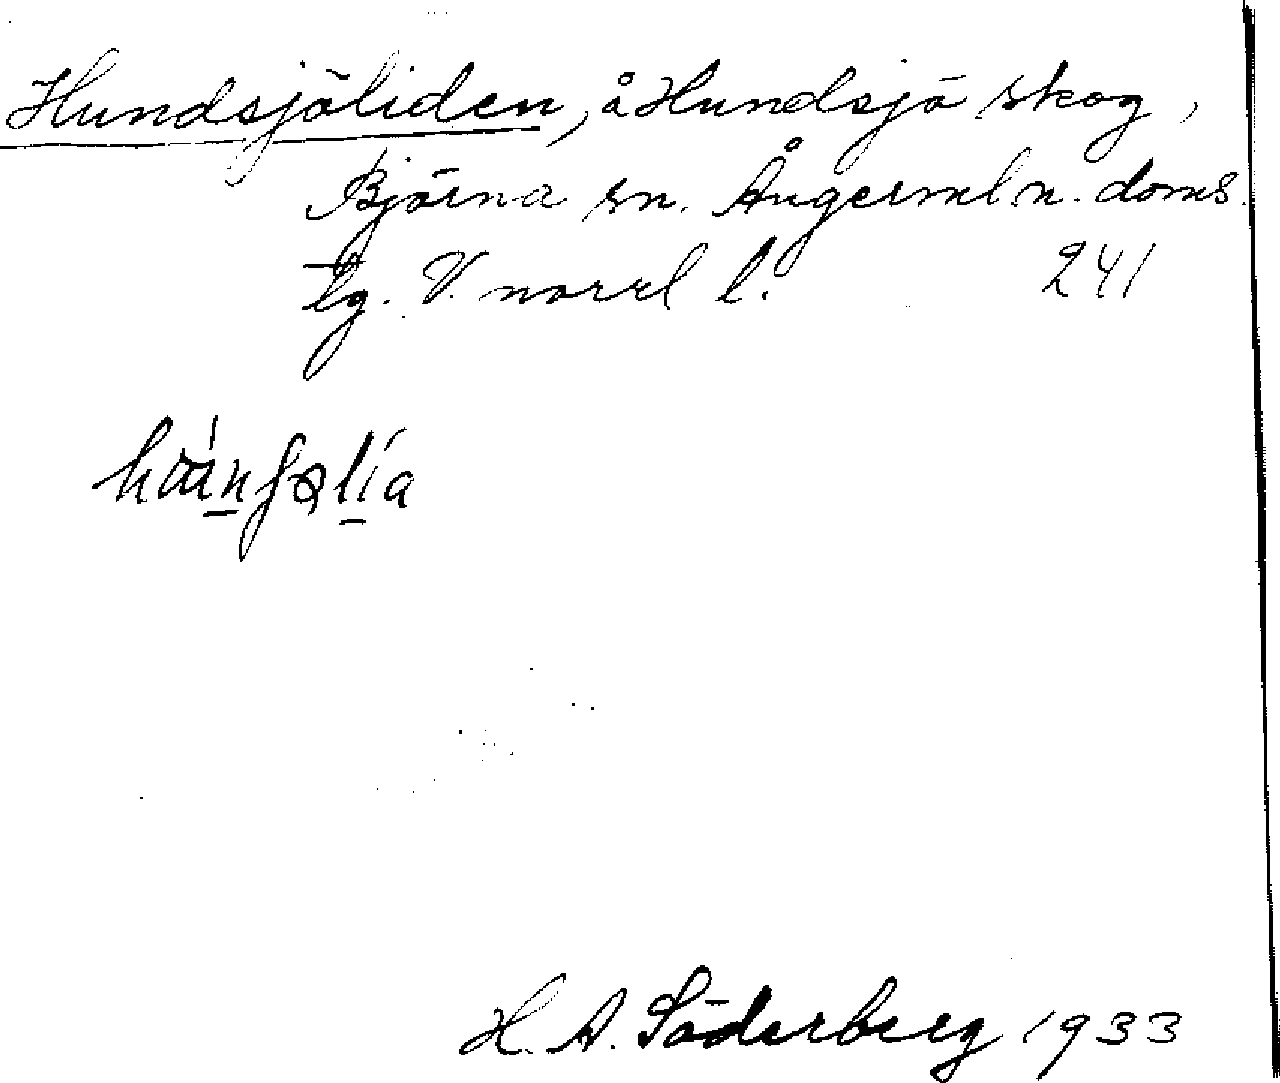 Hundsjöliden, å Hundsjö skog,
Björna sn. Ångerml. n. doms.
tg. V. norrl l. 241
H. A. Söderberg 1933